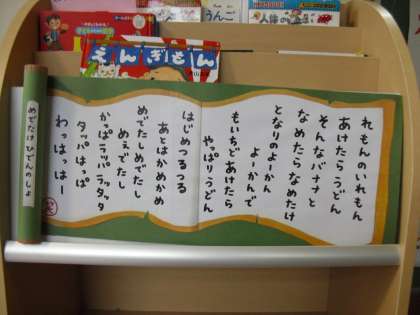 うんこ
えんぎもん
れもんのいれもん
あけたらうどん
そんなバナナと
なめたらなめたけ
となりのよーかん
よーかんで
もいちどあけたら
やっぱりうどん
はじめつるつる
あとはかめかめ
めでたしめでたし
めぇでたし
かっぱラッパラッタッタ
タッパはっぱ
わっはっはー
めでたけひでんのしょ